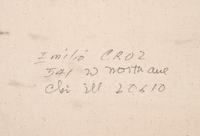 Emilio CRUZ
541 W North ave
Chi Ill 20610